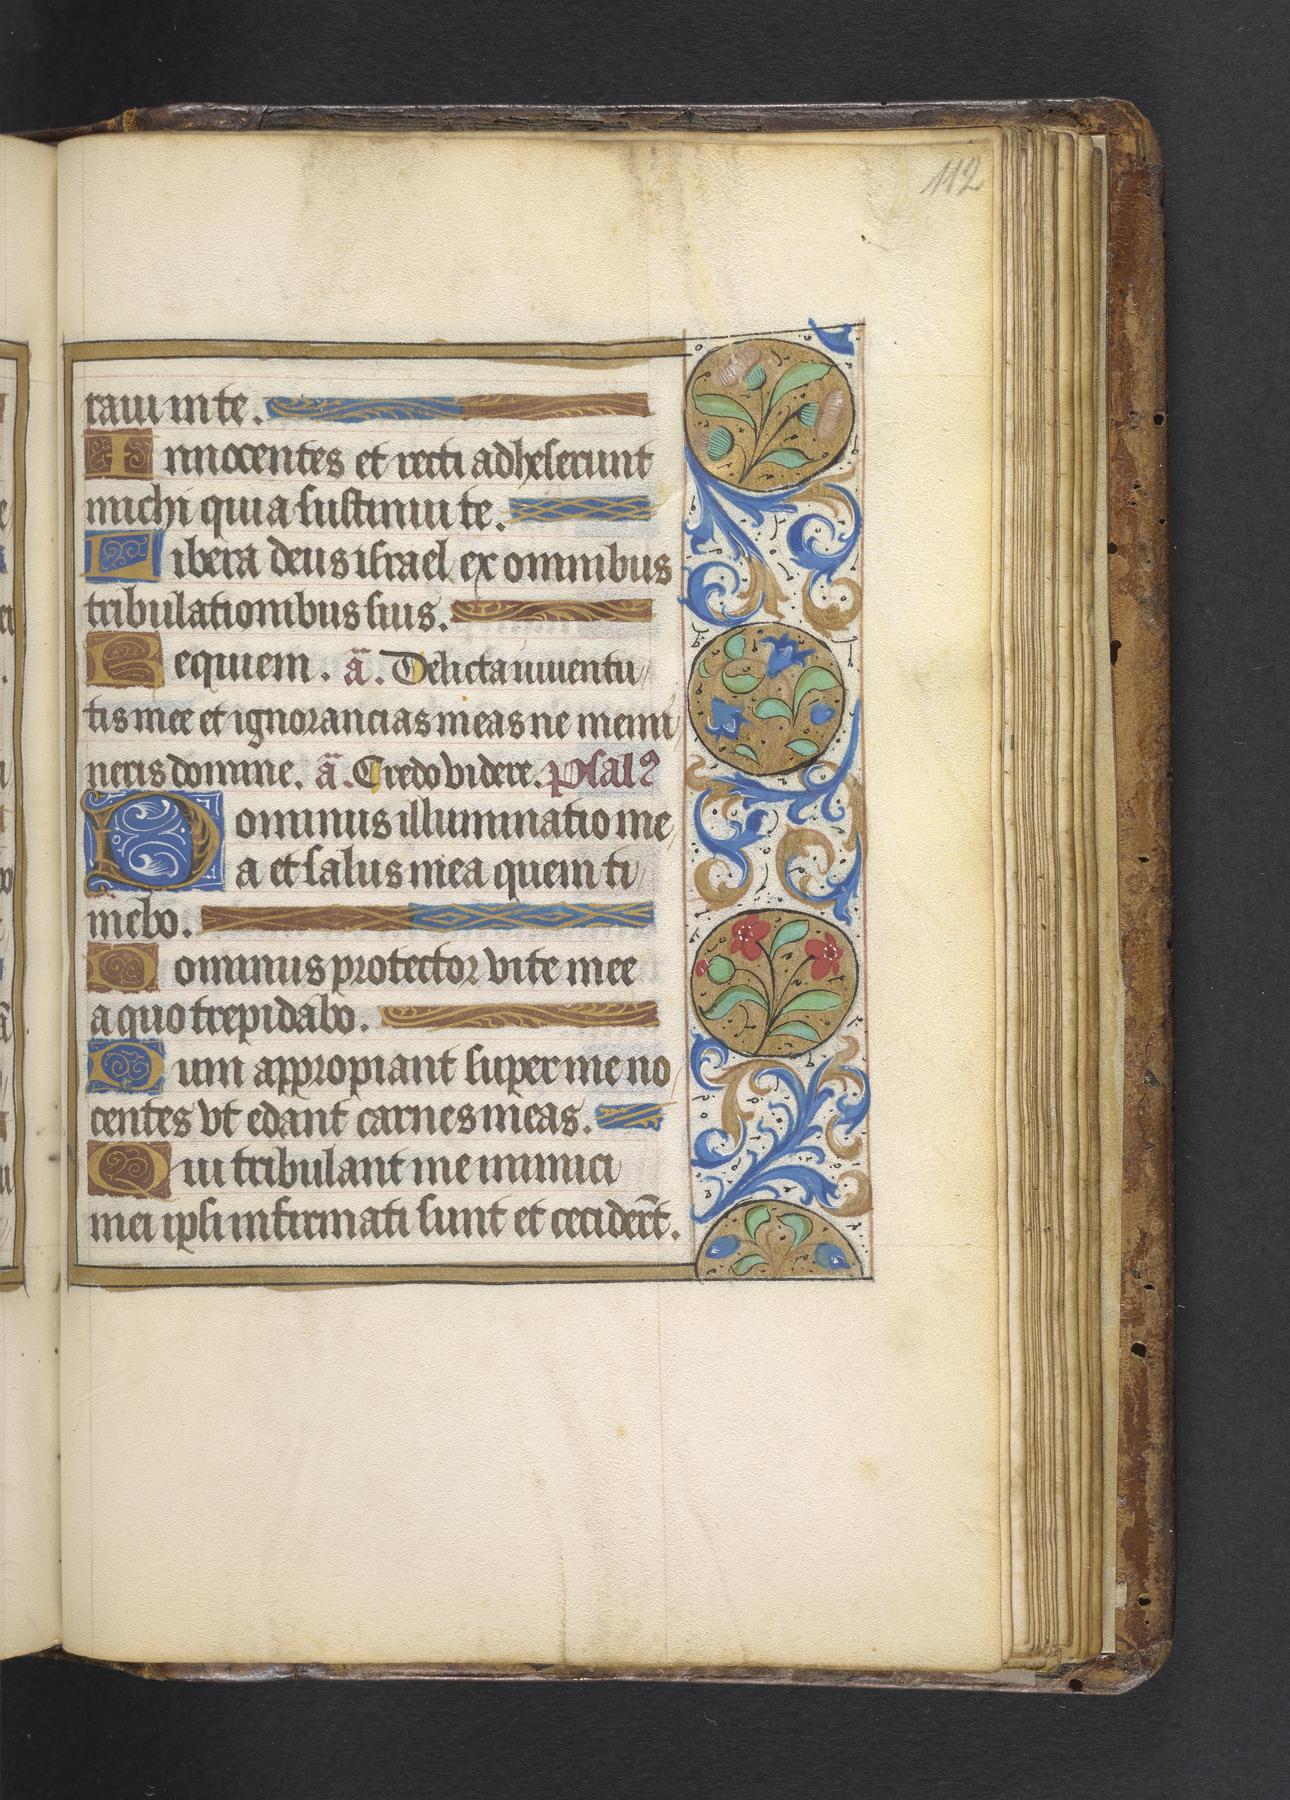 112
raui in te.
Innocentes et recti adheserunt
michi quia sustinui te.
Libera deus israel ex omnibus
tribulationibus suis.
Requiem. ā. Delicta iuuentu
tis mee et ignorancias meas ne memi
neris domine. ā. Credo videre. psalꝰ
Dominus illuminatio me
a et salus mea quem ti
mebo.
Dominus protector vite mee
a quo trepidabo.
Dum appropiant super me no
centes vt edant carnes meas.
Qui tribulant me inimici
mei ipsi infirmati sunt et ceciderūt.